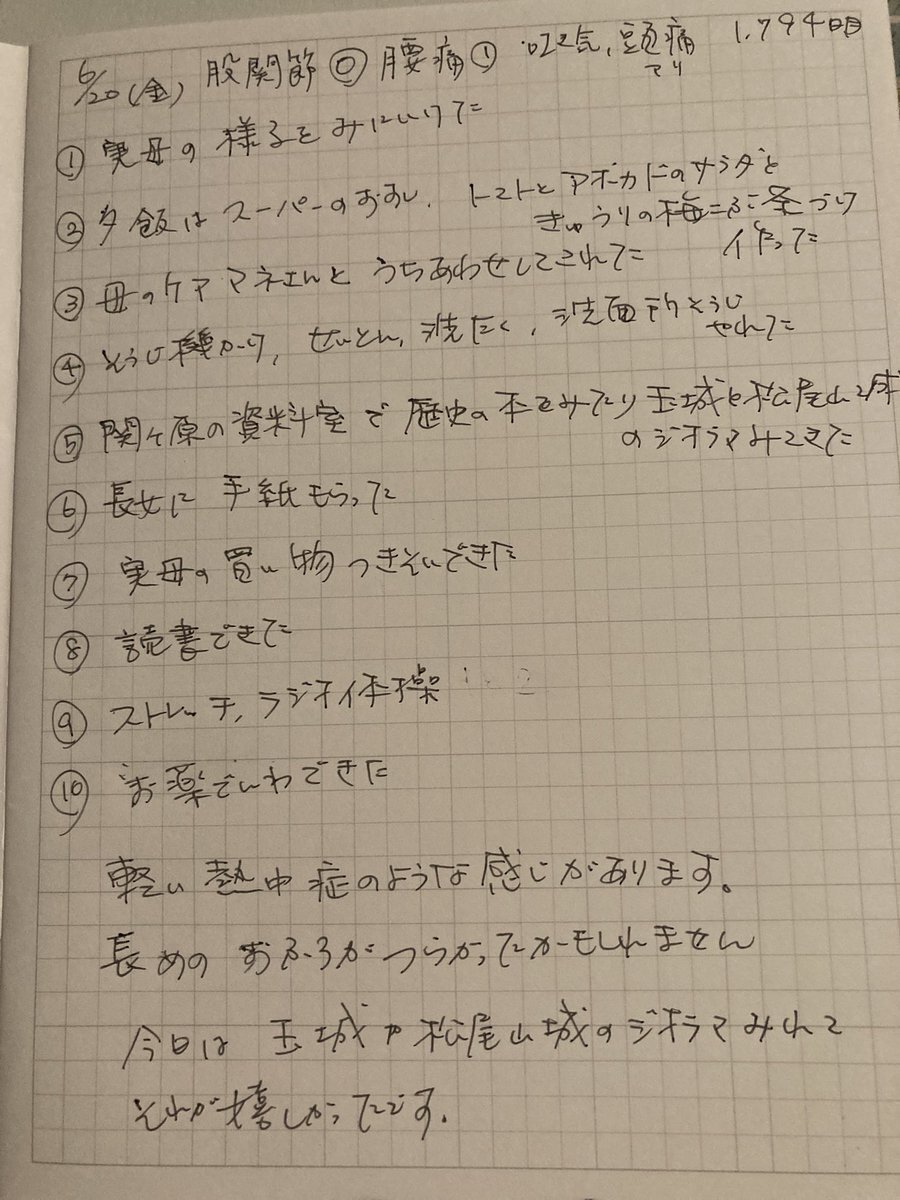 6/20(金) 股関節⓪ 腰痛① 吐き気,頭痛 1,794日目
あり
① 実母の様子をみにいけた
② 夕飯はスーパーのおすし、トマトとアボカドのサラダと
きゅうりの梅こぶ茶づけ
作った
③ 母のケアマネさんとうちあわせしてこれた
④ そうじ機かけ, せいとん, 洗たく, 洗面所そうじ
やれた
⑤ 関ヶ原の資料室で歴史の本をみたり玉城と松尾山城
のジオラマみてきた
⑥ 長女に手紙もらった
⑦ 実母の買い物つきそいできた
⑧ 読書できた
⑨ ストレッチ, ラジオ体操
⑩ お薬でいわできた
軽い熱中症のような感じがあります。
長めのおふろがつらかったかもしれません
今日は玉城や松尾山城のジオラマみれて
それが嬉しかったです。